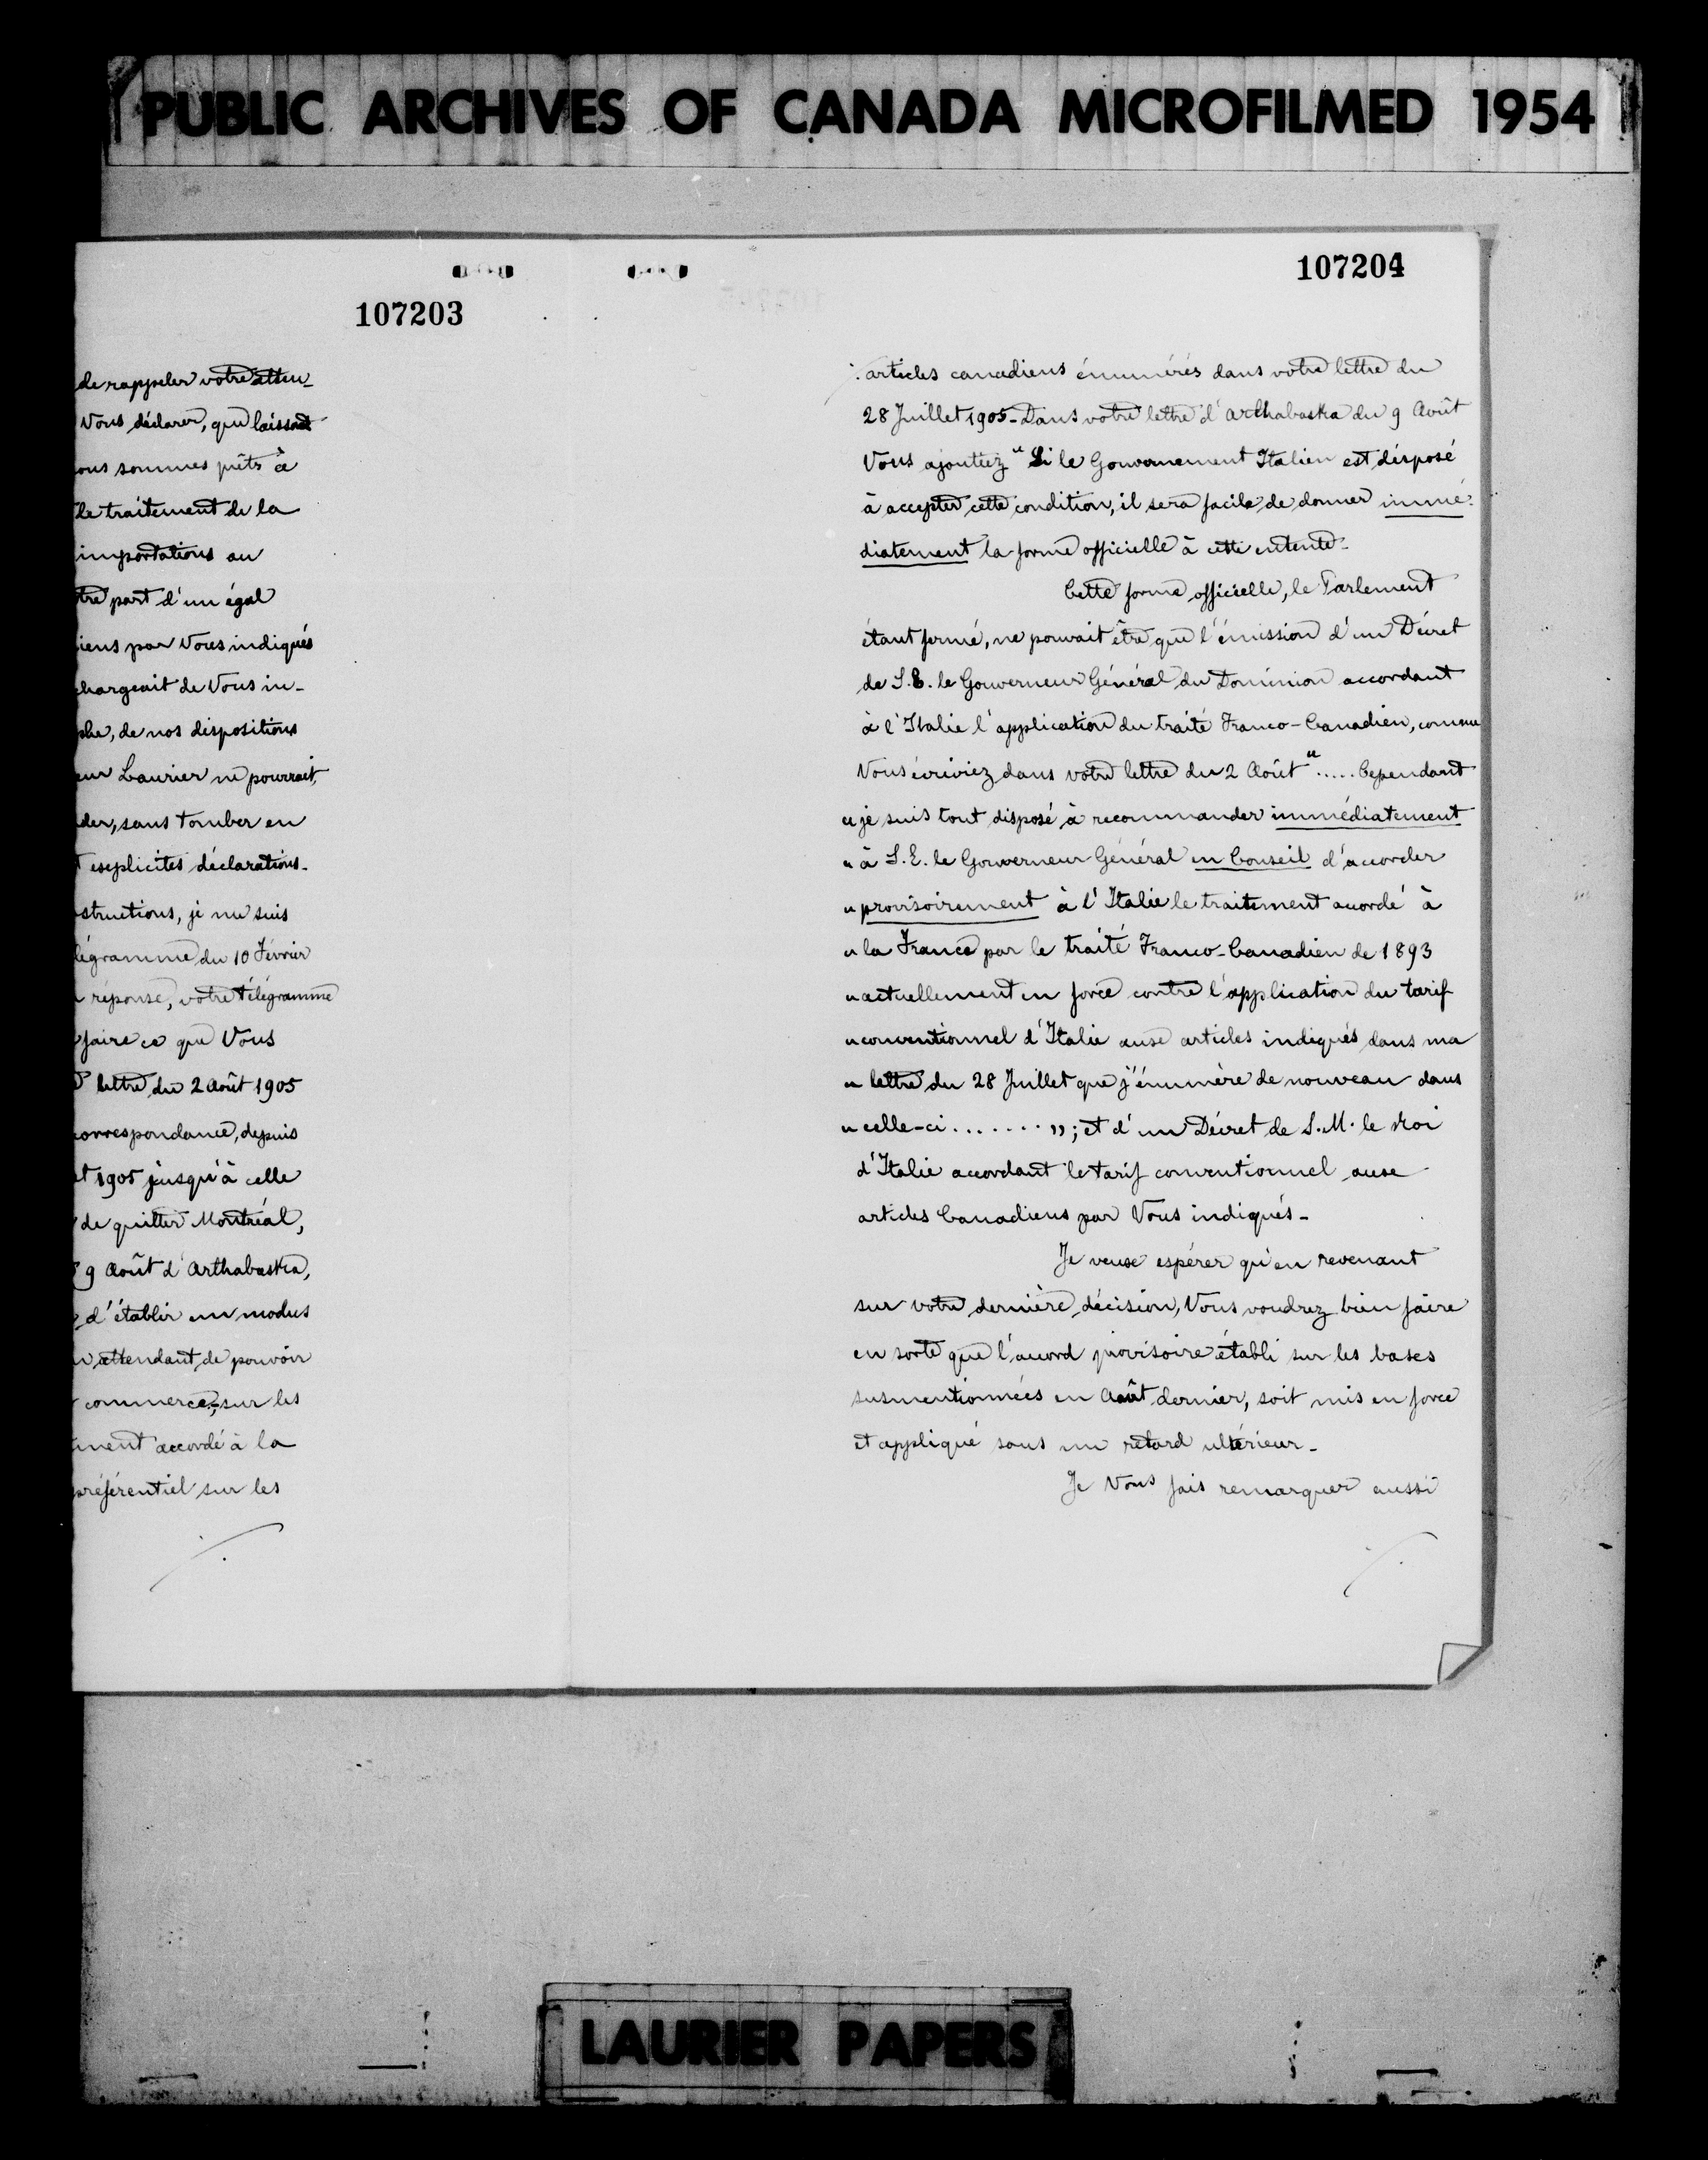 PUBLIC ARCHIVES OF CANADA MICROFILMED 1954
107203
de rappeler votre atten-
Vous déclarer, que laissant
ous sommes prêts à
le traitement de la
importations au
tre part d'un égal
iens par Vous indiqués
chargeait de Vous in-
phe, de nos dispositions
eur Laurier ne pourrait,
der, sans tomber en
t explicites déclarations.
structions, je me suis
légramme du 10 Février
réponse, votre télégramme
faire ce que Vous
lettre du 2 Août 1905
correspondance, depuis
et 1905 jusqu'à celle
de quitter Montréal,
9 Août d'Arthabaska,
d'établir un modus
n attendant de pouvoir
commerce, sur les
ment accordé à la
préférentiel sur les
./.
107204
articles canadiens énumérés dans votre lettre du
28 Juillet 1905 - Dans votre lettre d'Arthabaska du 9 Août
Vous ajoutiez " Si le Gouvernement Italien est disposé
à accepter cette condition, il sera facile de donner immé-
diatement la forme officielle à cette entente -
Cette forme officielle, le Parlement
étant fermé, ne pouvait être que l'émission d'un Décret
de S.E. le Gouverneur Général du Dominion accordant
à l'Italie l'application du traité Franco-Canadien, comme
Vous écriviez dans votre lettre du 2 Août "..... Cependant
" je suis tout disposé à recommander immédiatement
" à S.E. le Gouverneur Général en Conseil d'accorder
" provisoirement à l'Italie le traitement accordé à
" la France par le traité Franco-Canadien de 1893
" actuellement en force contre l'application du tarif
" conventionnel d'Italie aux articles indiqués dans ma
" lettre du 28 Juillet que j'énumère de nouveau dans
" celle-ci ....... "; et d'un Décret de S.M. le Roi
d'Italie accordant le tarif conventionnel aux
articles Canadiens par Vous indiqués -
Je veux espérer qu'en revenant
sur votre dernière décision, Vous voudrez bien faire
en sorte que l'accord provisoire établi sur les bases
susmentionnées en Août dernier, soit mis en force
et appliqué sans un retard ultérieur -
Je Vous fais remarquer aussi
./.
LAURIER PAPERS